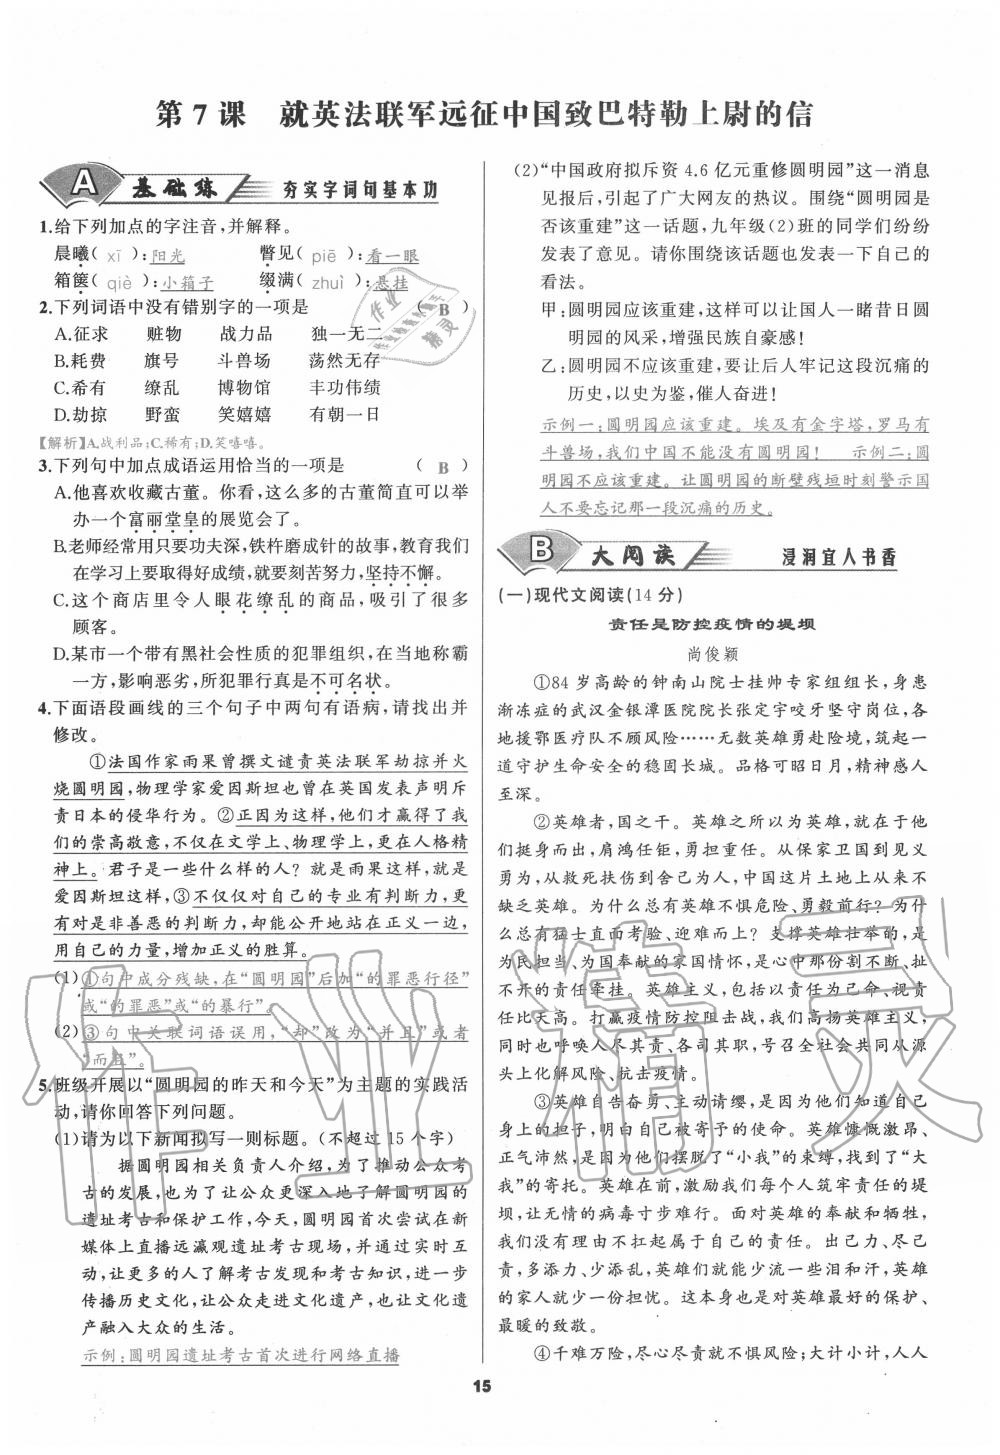 第 7 课 就英法联军远征中国致巴特勒上尉的信
A 基础练 夯实字词句基本功
1.给下列加点的字注音,并解释。
晨曦( xī ):阳光 瞥见( piē ):看一眼
箱箧( qiè ):小箱子 缀满( zhuì ):悬挂
2.下列词语中没有错别字的一项是 ( B )
A.征求 赃物 战力品 独一无二
B.耗费 旗号 斗兽场 荡然无存
C.希有 缭乱 博物馆 丰功伟绩
D.劫掠 野蛮 笑嬉嬉 有朝一日
【解析】A.战利品;C.稀有;D.笑嘻嘻。
3.下列句中加点成语运用恰当的一项是 ( B )
A.他喜欢收藏古董。你看,这么多的古董简直可以举
办一个富丽堂皇的展览会了。
B.老师经常用只要功夫深,铁杵磨成针的故事,教育我们
在学习中要想取得好成绩,就要刻苦努力,坚持不懈。
C.这个商店里令人眼花缭乱的商品,吸引了很多
顾客。
D.某市一个带有黑社会性质的犯罪组织,在当地称霸
一方,影响恶劣,所犯罪行真是不可名状。
4.下面语段画线的三个句子中两句有语病,请找出并
修改。
①法国作家雨果曾撰文谴责英法联军劫掠并火
烧圆明园,物理学家爱因斯坦也曾在英国发表声明斥
责日本的侵华行为。②正因为这样,他们才赢得了我
们的崇高敬意,不仅在文学上、物理学上,更在人格精
神上。君子是一些什么样的人?就是雨果这样,就是
爱因斯坦这样,③不仅仅对自己的专业有判断力,更
有对是非善恶的判断力,却能公开地站在正义一边,
用自己的力量,增加正义的胜算。
(1)①句中成分残缺,在“圆明园”后加“的罪恶行径”
或“的罪恶”或“的暴行”。
(2)③句中关联词语误用,“却”改为“并且”或者
“而且”。
5.班级开展以“圆明园的昨天和今天”为主题的实践活
动,请你回答下列问题。
(1)请为以下新闻拟写一则标题。(不超过 15 个字)
据圆明园相关负责人介绍,为了推动公众考
古的发展,也为了让公众更深入地了解圆明园的
遗址考古和保护工作,今天,圆明园首次尝试在新
媒体上直播远瀛观遗址考古现场,并通过实时互
动,让更多的人了解考古发现和考古知识,进一步
传播历史文化,让公众走进文化遗产,也让文化遗
产融入大众的生活。
示例:圆明园遗址考古首次进行网络直播
(2)“中国政府拟斥资 4.6 亿元重修圆明园”这一消息
见报后,引起了广大网友的热议。围绕“圆明园是
否该重建”这一话题,九年级(2)班的同学们纷纷
发表了意见。请你围绕该话题也发表一下自己的
看法。
甲:圆明园应该重建,这样可以让国人一睹昔日圆
明园的风采,增强民族自豪感!
乙:圆明园不应该重建,要让后人牢记这段沉痛的
历史,以史为鉴,催人奋进!
示例一:圆明园应该重建。埃及有金字塔,罗马有
斗兽场,我们中国不能没有圆明园! 示例二:圆
明园不应该重建。让圆明园的断壁残垣时刻警示国
人不要忘记那一段沉痛的历史。
B 大阅读 浸润宜人书香
(一)现代文阅读(14 分)
责任是防控疫情的堤坝
尚俊颖
①84 岁高龄的钟南山院士挂帅专家组组长,身患
渐冻症的武汉金银潭医院院长张定宇咬牙坚守岗位,各
地援鄂医疗队不顾风险……无数英雄勇赴险境,筑起一
道守护生命安全的稳固长城。品格可昭日月,精神感人
至深。
②英雄者,国之干。英雄之所以为英雄,就在于他
们挺身而出,肩鸿任钜,勇担重任。从保家卫国到见义
勇为,从救死扶伤到舍己为人,中国这片土地上从来不
缺乏英雄。为什么总有英雄不惧危险、勇毅前行?为什
么总有猛士直面考验、迎难而上?支撑英雄壮举的,是
为民担当、为国奉献的家国情怀,是心中那份割不断、扯
不开的责任牵挂。英雄主义,包蕴着责任为己命、视责
任比天高。打赢疫情防控阻击战,我们高扬英雄主义,
同时也呼唤人尽其责、各司其职,号召全社会共同从源
头上化解风险、抗击疫情。
③英雄自告奋勇、主动请缨,是因为他们知道自己
身上的担子,明白其被寄予的使命。英雄慷慨激昂、
正气沛然,是因为他们摆脱了“小我”的束缚,找到了“大
我”的寄托。英雄在前,激励我们每个人筑牢责任的堤
坝,让无情的病毒寸步难行。面对英雄的奉献和牺牲,
我们没有理由不扛起属于自己的责任。出己力、尽己
责,多添力、少添乱,英雄们就能少流一些泪和汗,英雄
的家人就少一份担忧。这本身也是对英雄最好的保护、
最暖的致敬。
④千难万险,尽心尽责就无惧风险;大计小计,人人
15
作业精灵
作业
精灵